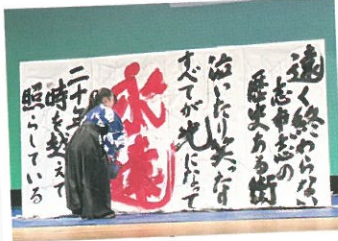 遠く終わらない
志布志の
歴史ある街
泣いたり笑ったり
すべてが光になって
永遠
二十年
時を越えて
照らしている